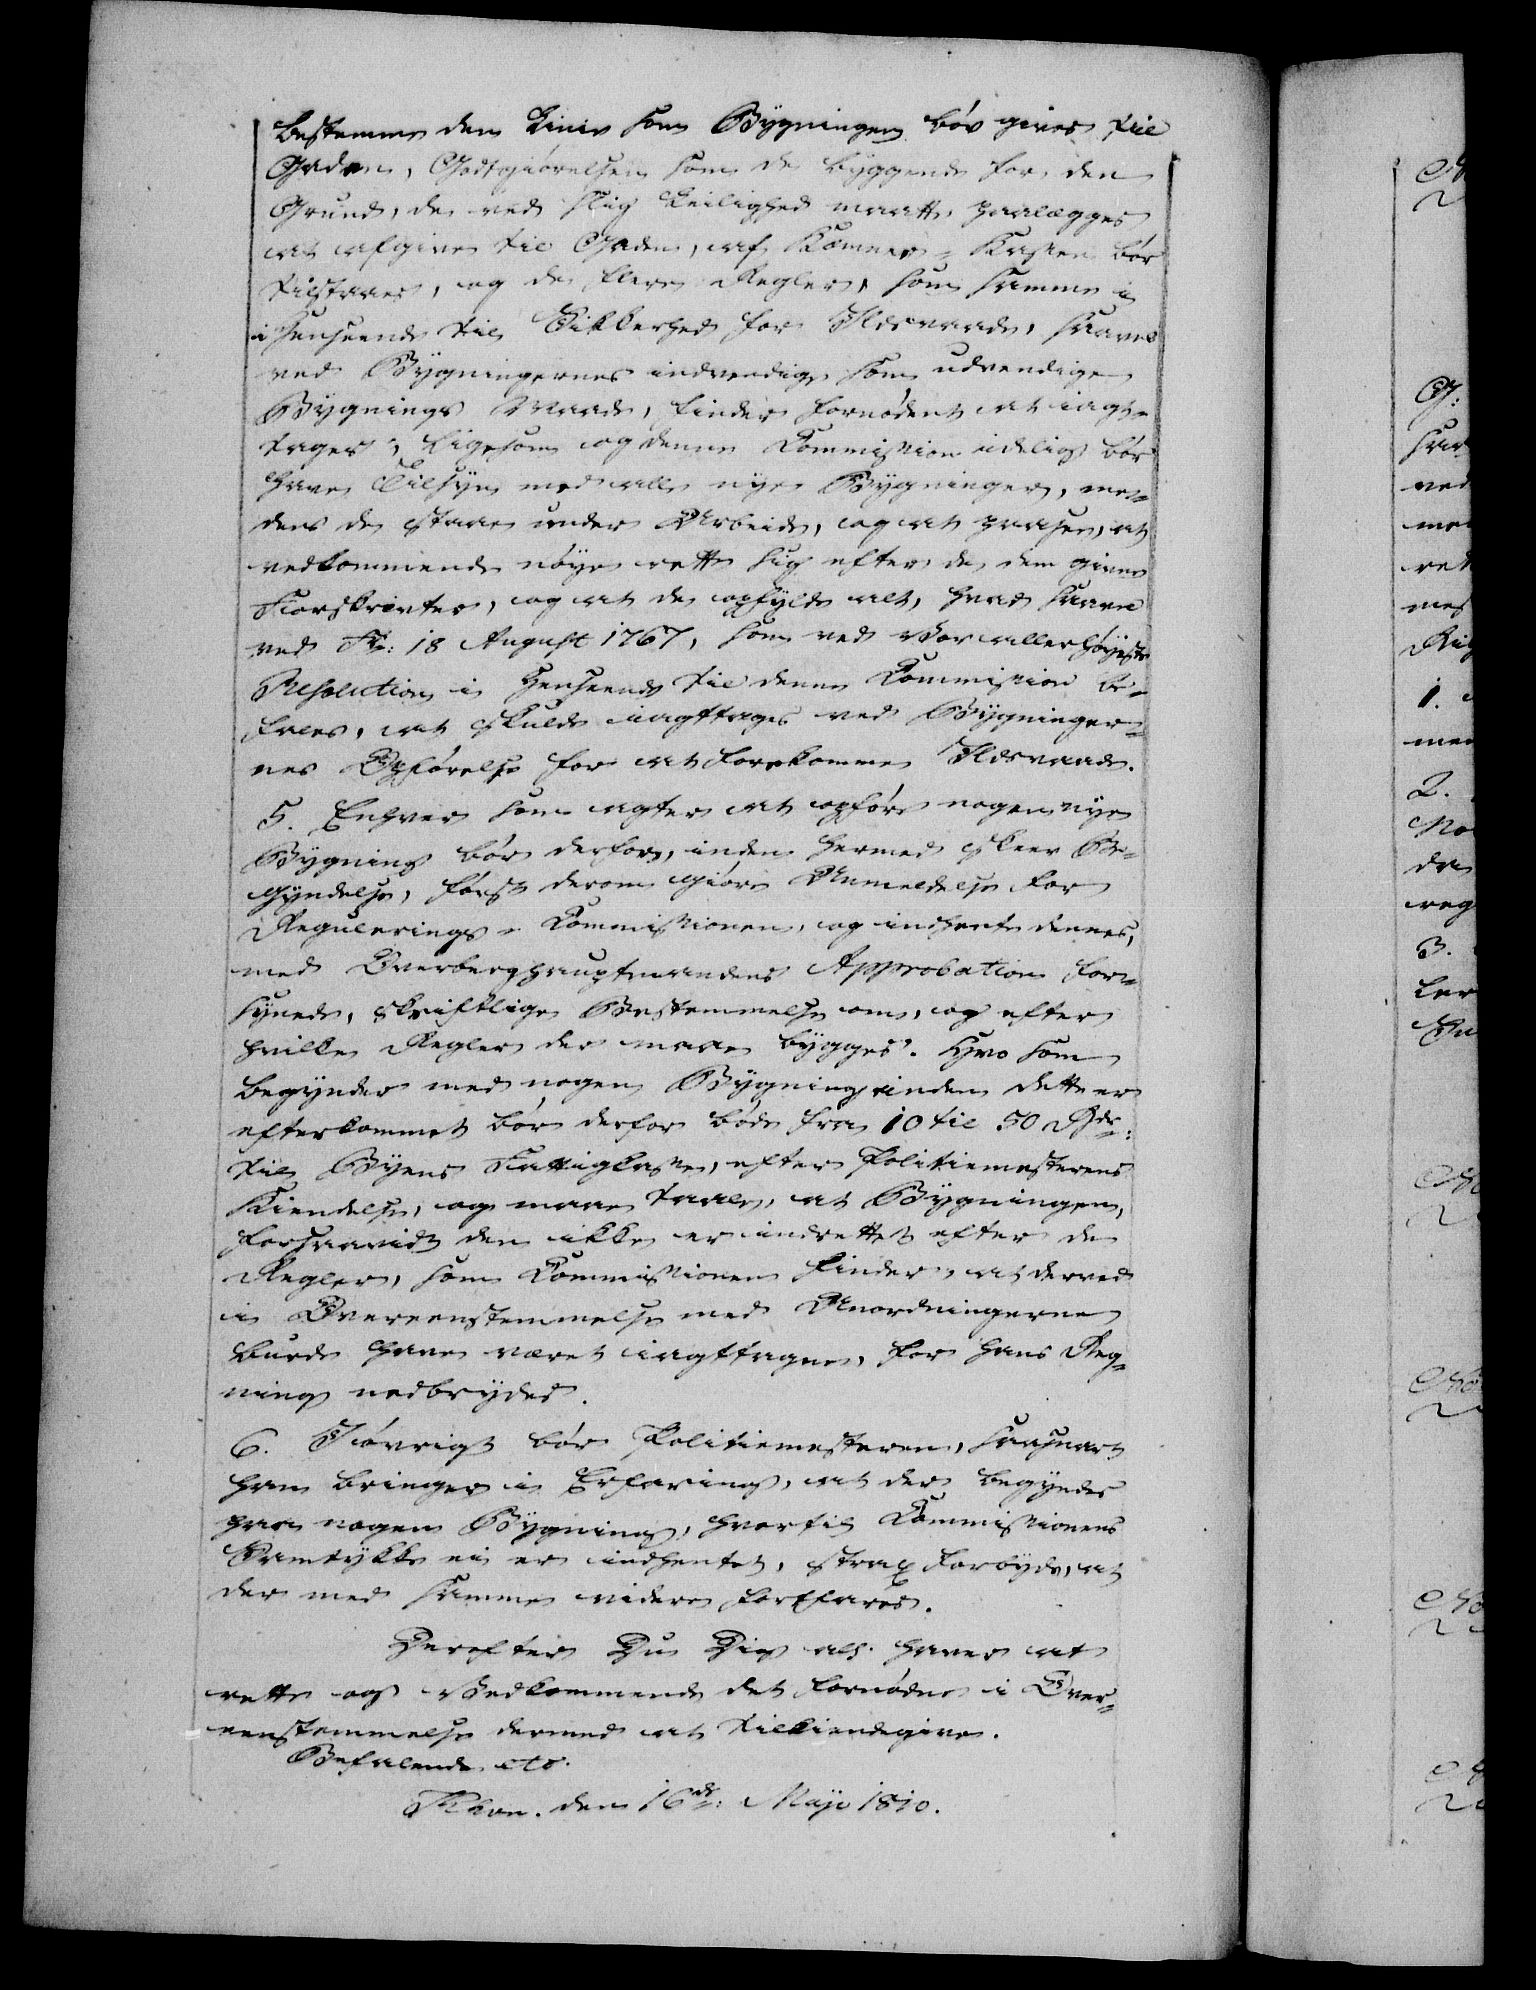 bestemme den Linie som Bygningen bør gives til
Gaden, Godtgiørelsen som de byggende for den
Grund, de ved slig Leilighed maatte paalægges
at afgive til Gaden, af Kæmner-Kassen bør
tilstaaes, og de flere Regler, som samme i
Henseende til Sikkerhed for Ildsvaade, saavel
ved Bygningernes indvendige som udvendige
Bygnings Maade, finder fornødent at iagt-
tages; Ligesom og denne Kommission idelig bør
have Tilsyn med alle nye Bygninger, me-
dens de staae under Arbeide, og at paasee, at
vedkommende nøye rette sig efter de dem givne
Forskrivter, og at de opfylde alt, hvad saavel
ved Fr: 18 August 1767, som ved Vor allerhøyeste
Resolution i Henseende til denne Kommission be-
fales, at skulde iagttages ved Bygninger-
nes Opførelse for at forekomme Ildsvaade.
5. Enhver som agter at opføre nogen nye
Bygning bør derfor, inden hermed skeer Be-
gyndelse, først derom giøre Anmeldelse for
Regulerings-Kommissionen, og indhente dennes,
med Overberghauptmandens Approbation for-
synede, skriftlige Bestemmelse om, og efter
hvilke Regler der maae bygges. Hvo som
begynder med nogen Bygning inden dette er
efterkommet bør derfor bøde fra 10 til 50 Rdr:
til Byens Fattigkasse, efter Politiemesterens
Kiendelse, og maae taale, at Bygningen,
forsaavidt den ikke er indrettet efter de
Regler, som Kommissionen finder, at derved
i Overeenstemmelse med Anordningerne
burde have været iagttagne, for hans Reg-
ning nedbrydes.
6. Iøvrigt bør Politiemesteren, saasnart
han bringer i Erfaring, at der begyndes
paa nogen Bygning, hvortil Kommissionens
Samtykke ei er indhentet, strax forbyde, at
der med samme videre fortfares.
Derefter Du Dig all: haver at
rette og Vedkommende det fornødne i Over-
eenstemmelse dermed at tilkiendegive.
Befalende etc.
Khvn. den 16de: Maji 1810.